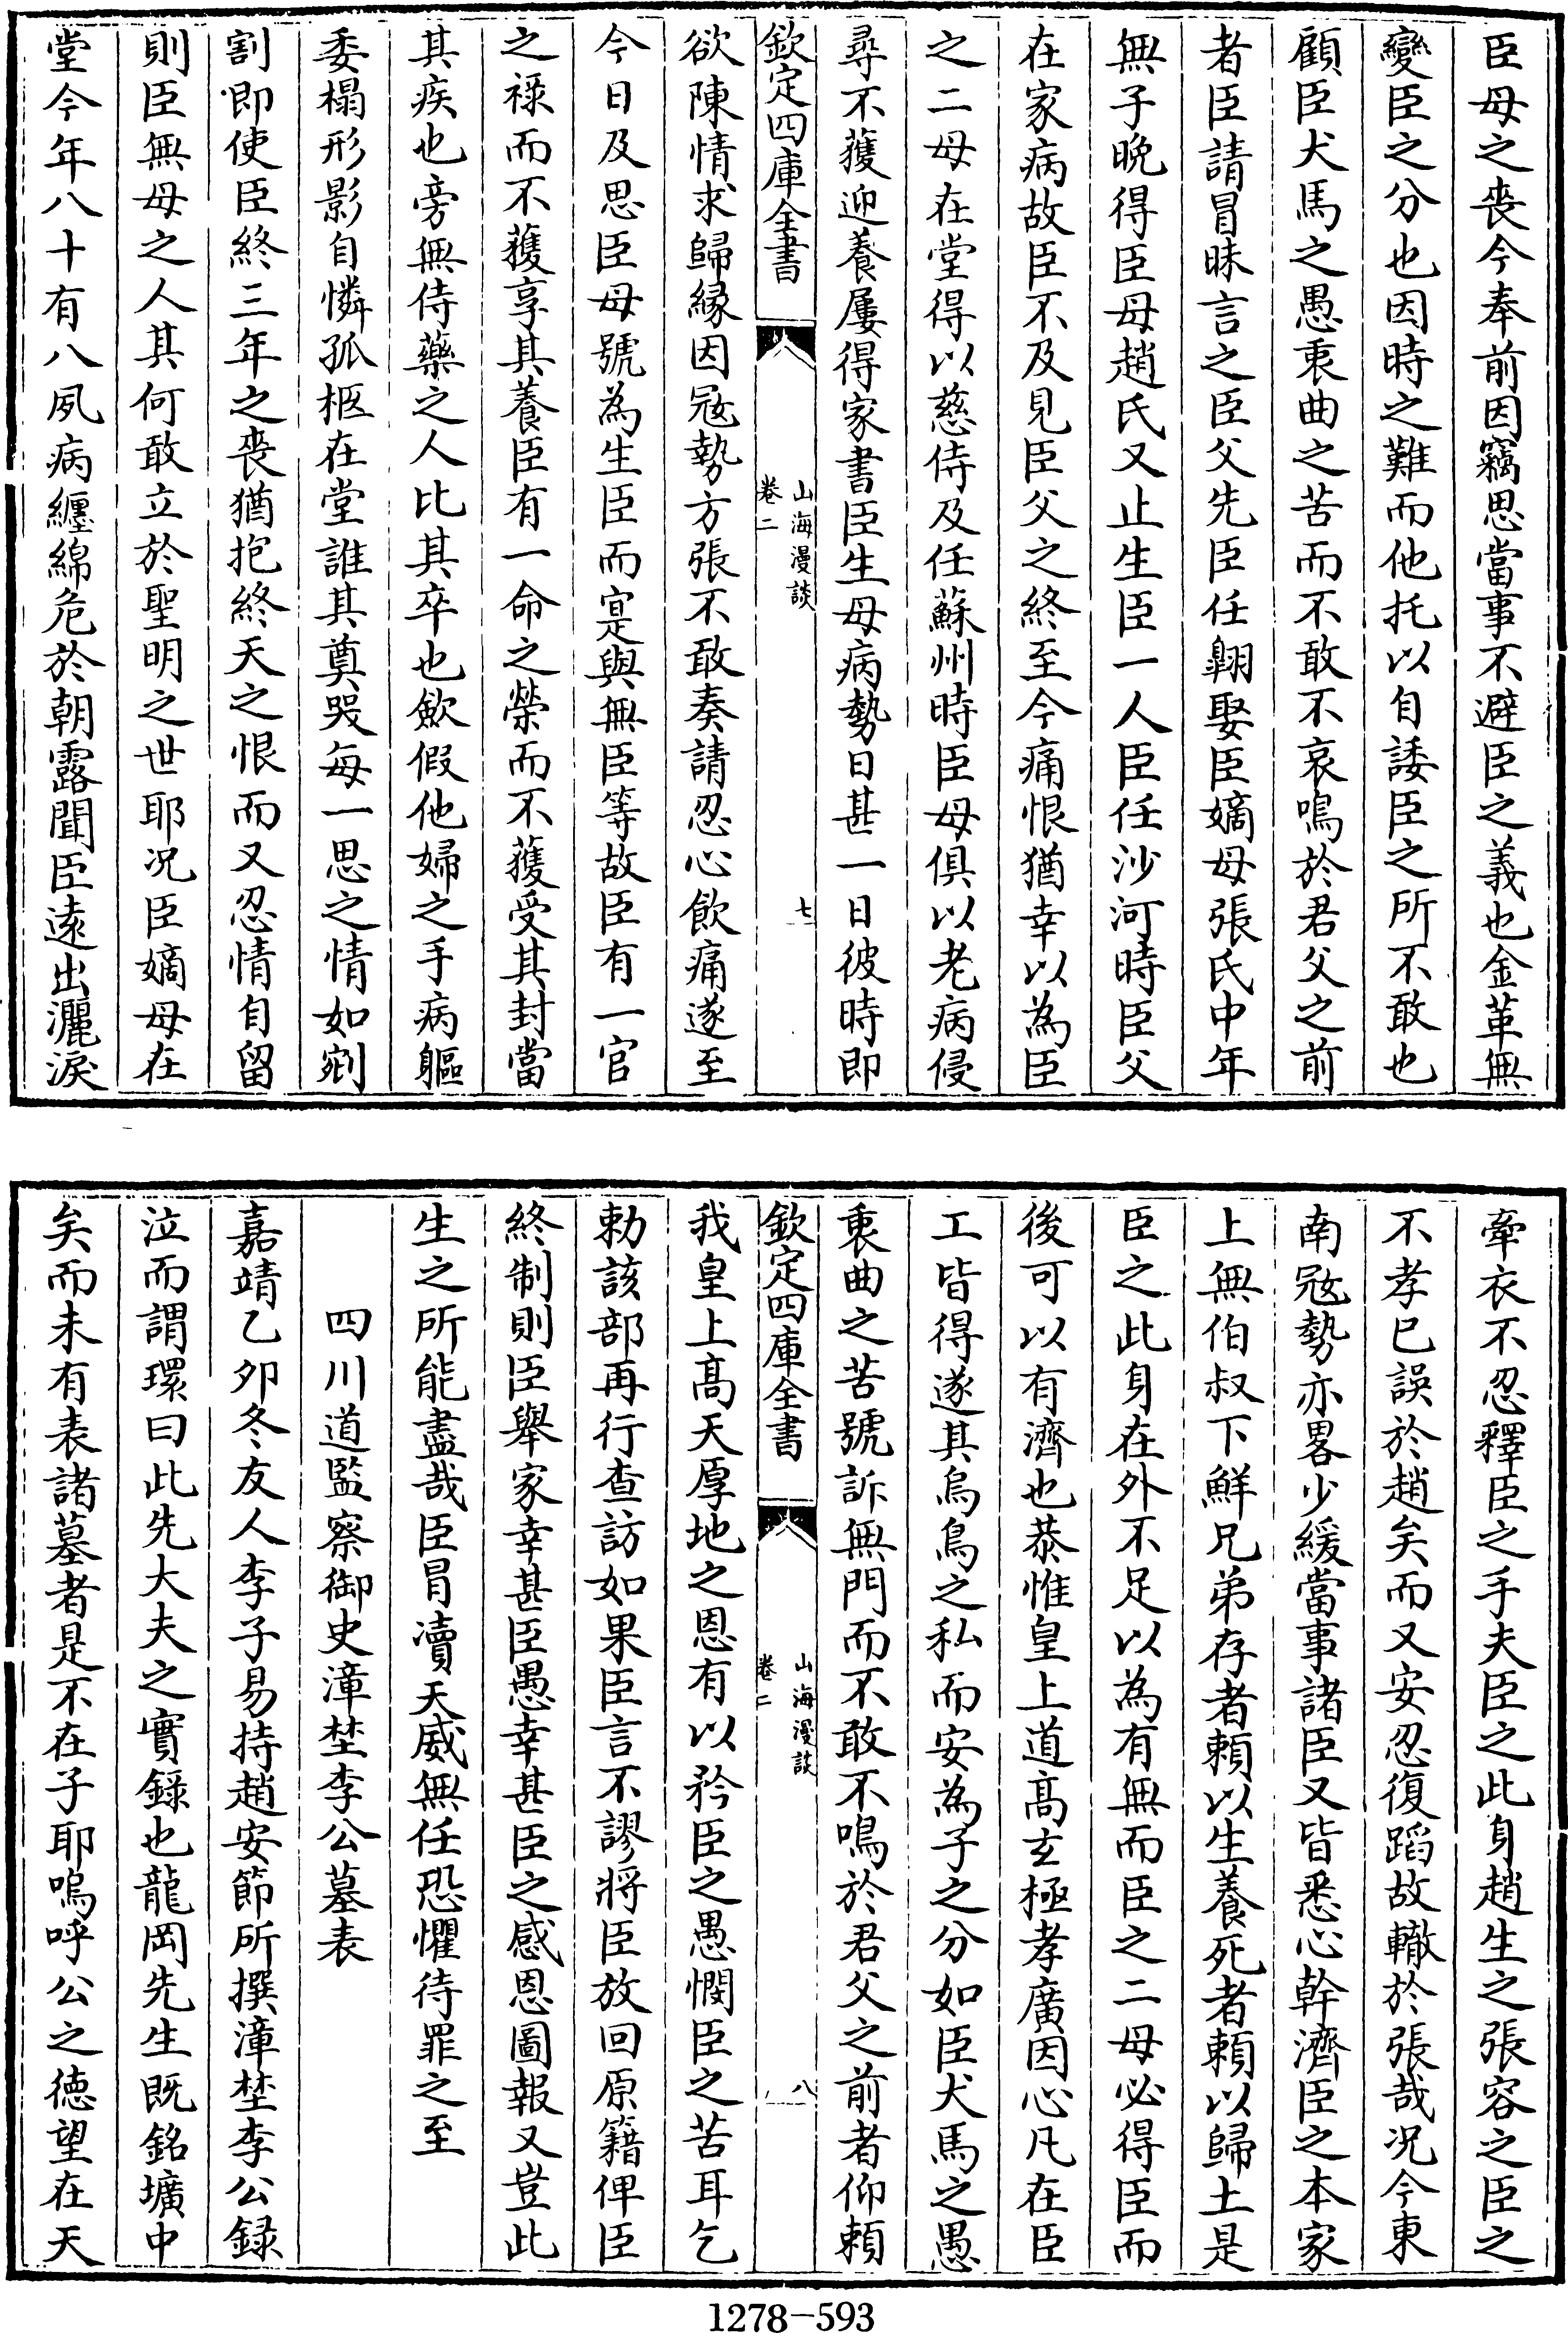 臣母之喪今奉前因竊思當事不避臣之義也金革無
變臣之分也因時之難而他托以自諉臣之所不敢也
顧臣犬馬之愚衷曲之苦而不敢不哀鳴於君父之前
者臣請冒昧言之臣父先臣任翱娶臣嫡母張氏中年
無子晚得臣母趙氏又止生臣一人臣任沙河時臣父
在家病故臣不及見臣父之終至今痛恨猶幸以為臣
之二母在堂得以慈侍及任蘇州時臣母俱以老病侵
尋不獲迎養屢得家書臣生母病勢日甚一日彼時即
欽定四庫全書
山海漫談
卷二
七
欲陳情求歸緣因冦勢方張不敢奏請忍心飲痛遂至
今日及思臣母號為生臣而寔與無臣等故臣有一官
之祿而不獲享其養臣有一命之榮而不獲受其封當
其疾也旁無侍藥之人比其卒也歛假他婦之手病軀
委榻形影自憐孤柩在堂誰其奠哭每一思之情如剜
割即使臣終三年之喪猶抱終天之恨而又忍情自留
則臣無母之人其何敢立於聖明之世耶况臣嫡母在
堂今年八十有八夙病纏綿危於朝露聞臣遠出灑淚
牽衣不忍釋臣之手夫臣之此身趙生之張容之臣之
不孝已誤於趙矣而又安忍復蹈故轍於張哉况今東
南冦勢亦畧少緩當事諸臣又皆悉心幹濟臣之本家
上無伯叔下鮮兄弟存者賴以生養死者賴以歸土是
臣之此身在外不足以為有無而臣之二母必得臣而
後可以有濟也恭惟皇上道髙玄極孝廣因心凡在臣
工皆得遂其烏鳥之私而安為子之分如臣犬馬之愚
衷曲之苦號訴無門而不敢不鳴於君父之前者仰賴
欽定四庫全書
山海漫談
卷二
八
我皇上髙天厚地之恩有以矜臣之愚憫臣之苦耳乞
勅該部再行查訪如果臣言不謬將臣放回原籍俾臣
終制則臣舉家幸甚臣愚幸甚臣之感恩圖報又豈此
生之所能盡哉臣冒瀆天威無任恐懼待罪之至
四川道監察御史漳埜李公墓表
嘉靖乙卯冬友人李子易持趙安節所撰漳埜李公録
泣而謂環曰此先大夫之實録也龍岡先生既銘壙中
矣而未有表諸墓者是不在子耶嗚呼公之德望在天
1278-593